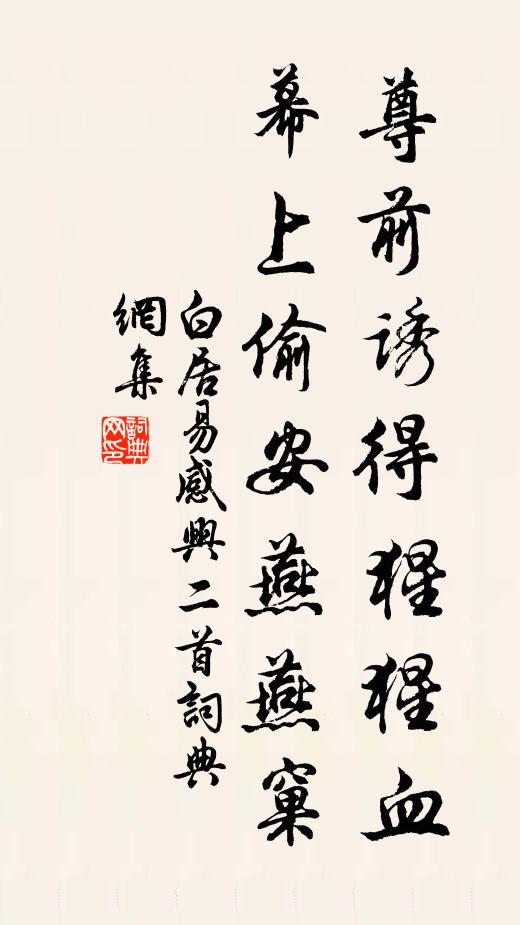 尊前誘得猩猩血
幕上偷安燕燕窠
白居易感興二首詞典
網集
詞典
网印